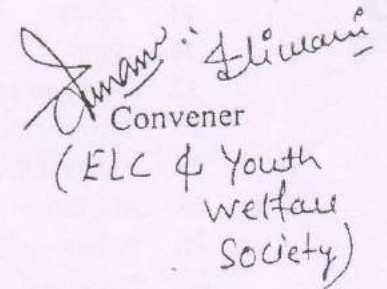 Convener
(ELC & Youth
Welfare
Society)